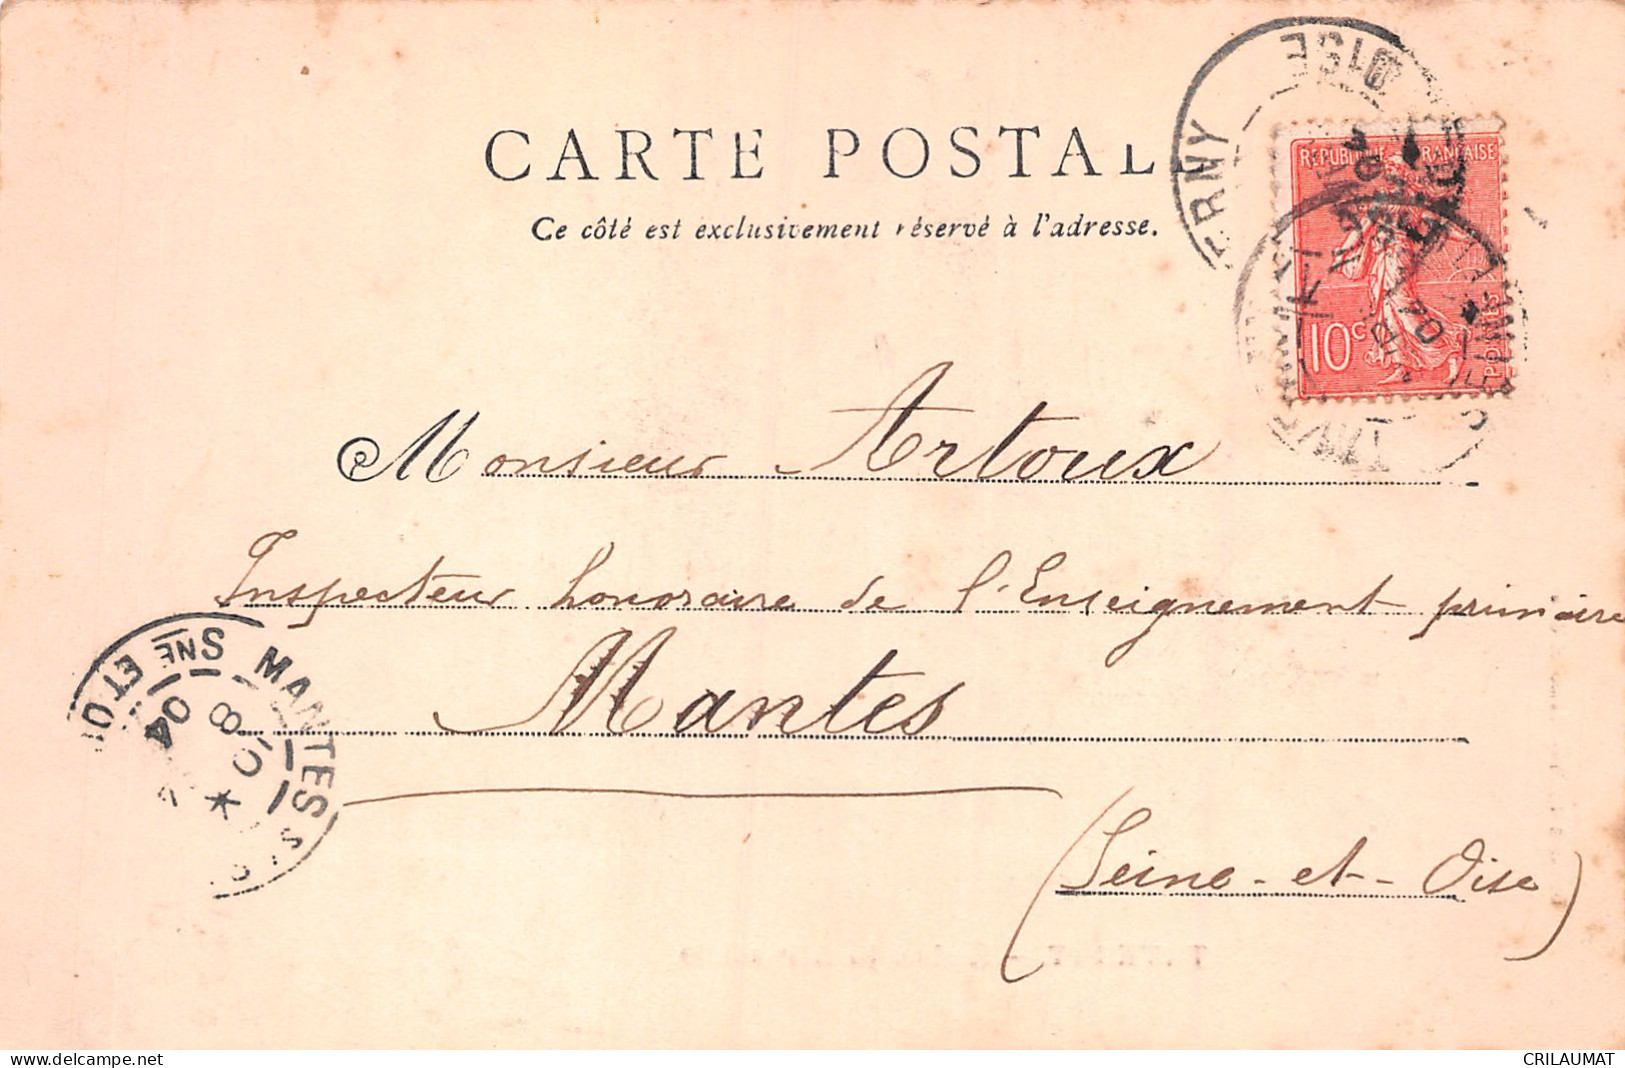 CARTE POSTALE
Ce côté est exclusivement réservé à l'adresse.
OISE
ERNY
RÉPUBLIQUE FRANÇAISE
10c
POSTES
Monsieur Artoux
Inspecteur honoraire de l'Enseignement primaire
Mantes
(Seine-et-Oise)
MANTES S.
SNE ET OI
8
04
delcampe.net
CRILAUMAT